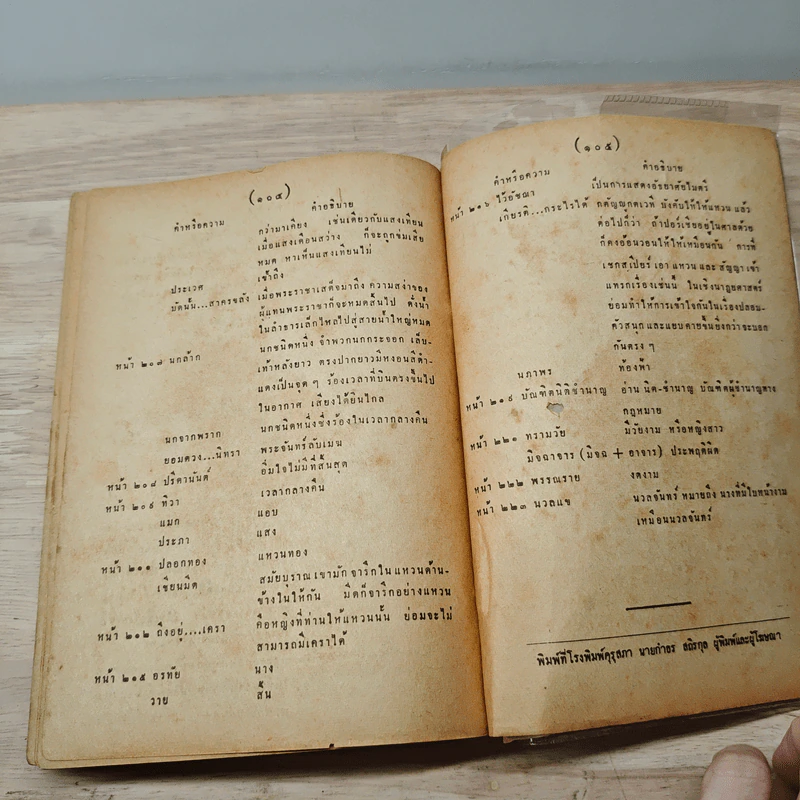 (๑๐๔)
คำหรือความ คำอธิบาย
กว่ามาเคียง เช่นเดียวกับแสงเทียน
เมื่อแสงเดือนสว่าง ก็จะถูกข่มเสีย
หมด หาเห็นแสงเทียนไม่
ประเวศ เข้าถึง
บัดนั้น...สาครขลัง เมื่อพระราชาเสด็จมาถึง ความสง่าของ
ผู้แทนพระราชาก็จะหมดสิ้นไป ดั่งน้ำ
ในลำธารเล็กไหลไปสู่สายน้ำใหญ่หมด
หน้า ๒๐๗ นกล้าก นกชนิดหนึ่ง จำพวกนกกระจอก เล็บ-
เท้าหลังยาว ตรงปากยาวมีหงอนสีดำ-
แดงเป็นจุด ๆ ร้องเวลาที่บินตรงขึ้นไป
ในอากาศ เสียงได้ยินไกล
นกจากพราก นกชนิดหนึ่งซึ่งร้องในเวลากลางคืน
ยอมดวง...นิทรา พระจันทร์ลับเมฆ
หน้า ๒๐๘ ปรีดานันต์ อิ่มใจไม่มีที่สิ้นสุด
หน้า ๒๐๙ ทิวา เวลากลางคืน
แมก แอบ
ประภา แสง
หน้า ๒๑๑ ปลอกทอง แหวนทอง
เชียนมีด สมัยบุราณ เขามัก จารึกใน แหวนด้าน-
ข้างในให้กัน มีดก็จารึกอย่างแหวน
หน้า ๒๑๒ ถึงอยู่....เครา คือหญิงที่ท่านให้แหวนนั้น ย่อมจะไม่
สามารถมีเคราได้
หน้า ๒๑๕ อรทัย นาง
วาย สิ้น
(๑๐๕)
คำหรือความ คำอธิบาย
หน้า ๒๑๖ ไว้อัชฌา เป็นการแสดงอัธยาศัยไมตรี
เกียรติ...กระไรได้ กตัญญุกตเวที บังคับให้ให้แหวน แล้ว
ต่อไปก็ว่า ถ้าปอร์เชียอยู่ในศาลด้วย
ก็คงอ้อนวอนให้ให้เหมือนกัน การที่
เชกสเปียร์ เอา แหวน และ สัญญา เข้า
แทรกเรื่องเช่นนี้ ในเชิงนาฏยศาสตร์
ย่อมทำให้การเข้าใจกันในเรื่องปลอม-
ตัวสนุก และแยบคายขึ้นยิ่งกว่าจะบอก
กันตรง ๆ
นภาพร ท้องฟ้า
หน้า ๒๑๙ บัณฑิตนิติชำนาญ อ่าน นิด-ชำนาญ บัณฑิตผู้ชำนาญทาง
กฎหมาย
หน้า ๒๒๑ ทรามวัย มีวัยงาม หรือหญิงสาว
มิจฉาจาร (มิจฉ + อาจาร) ประพฤติผิด
หน้า ๒๒๒ พรรณราย งดงาม
หน้า ๒๒๓ นวลแข นวลจันทร์ หมายถึง นางที่มีใบหน้างาม
เหมือนนวลจันทร์
พิมพ์ที่โรงพิมพ์คุรุสภา นายกำธร สถิรกุล ผู้พิมพ์และผู้โฆษณา